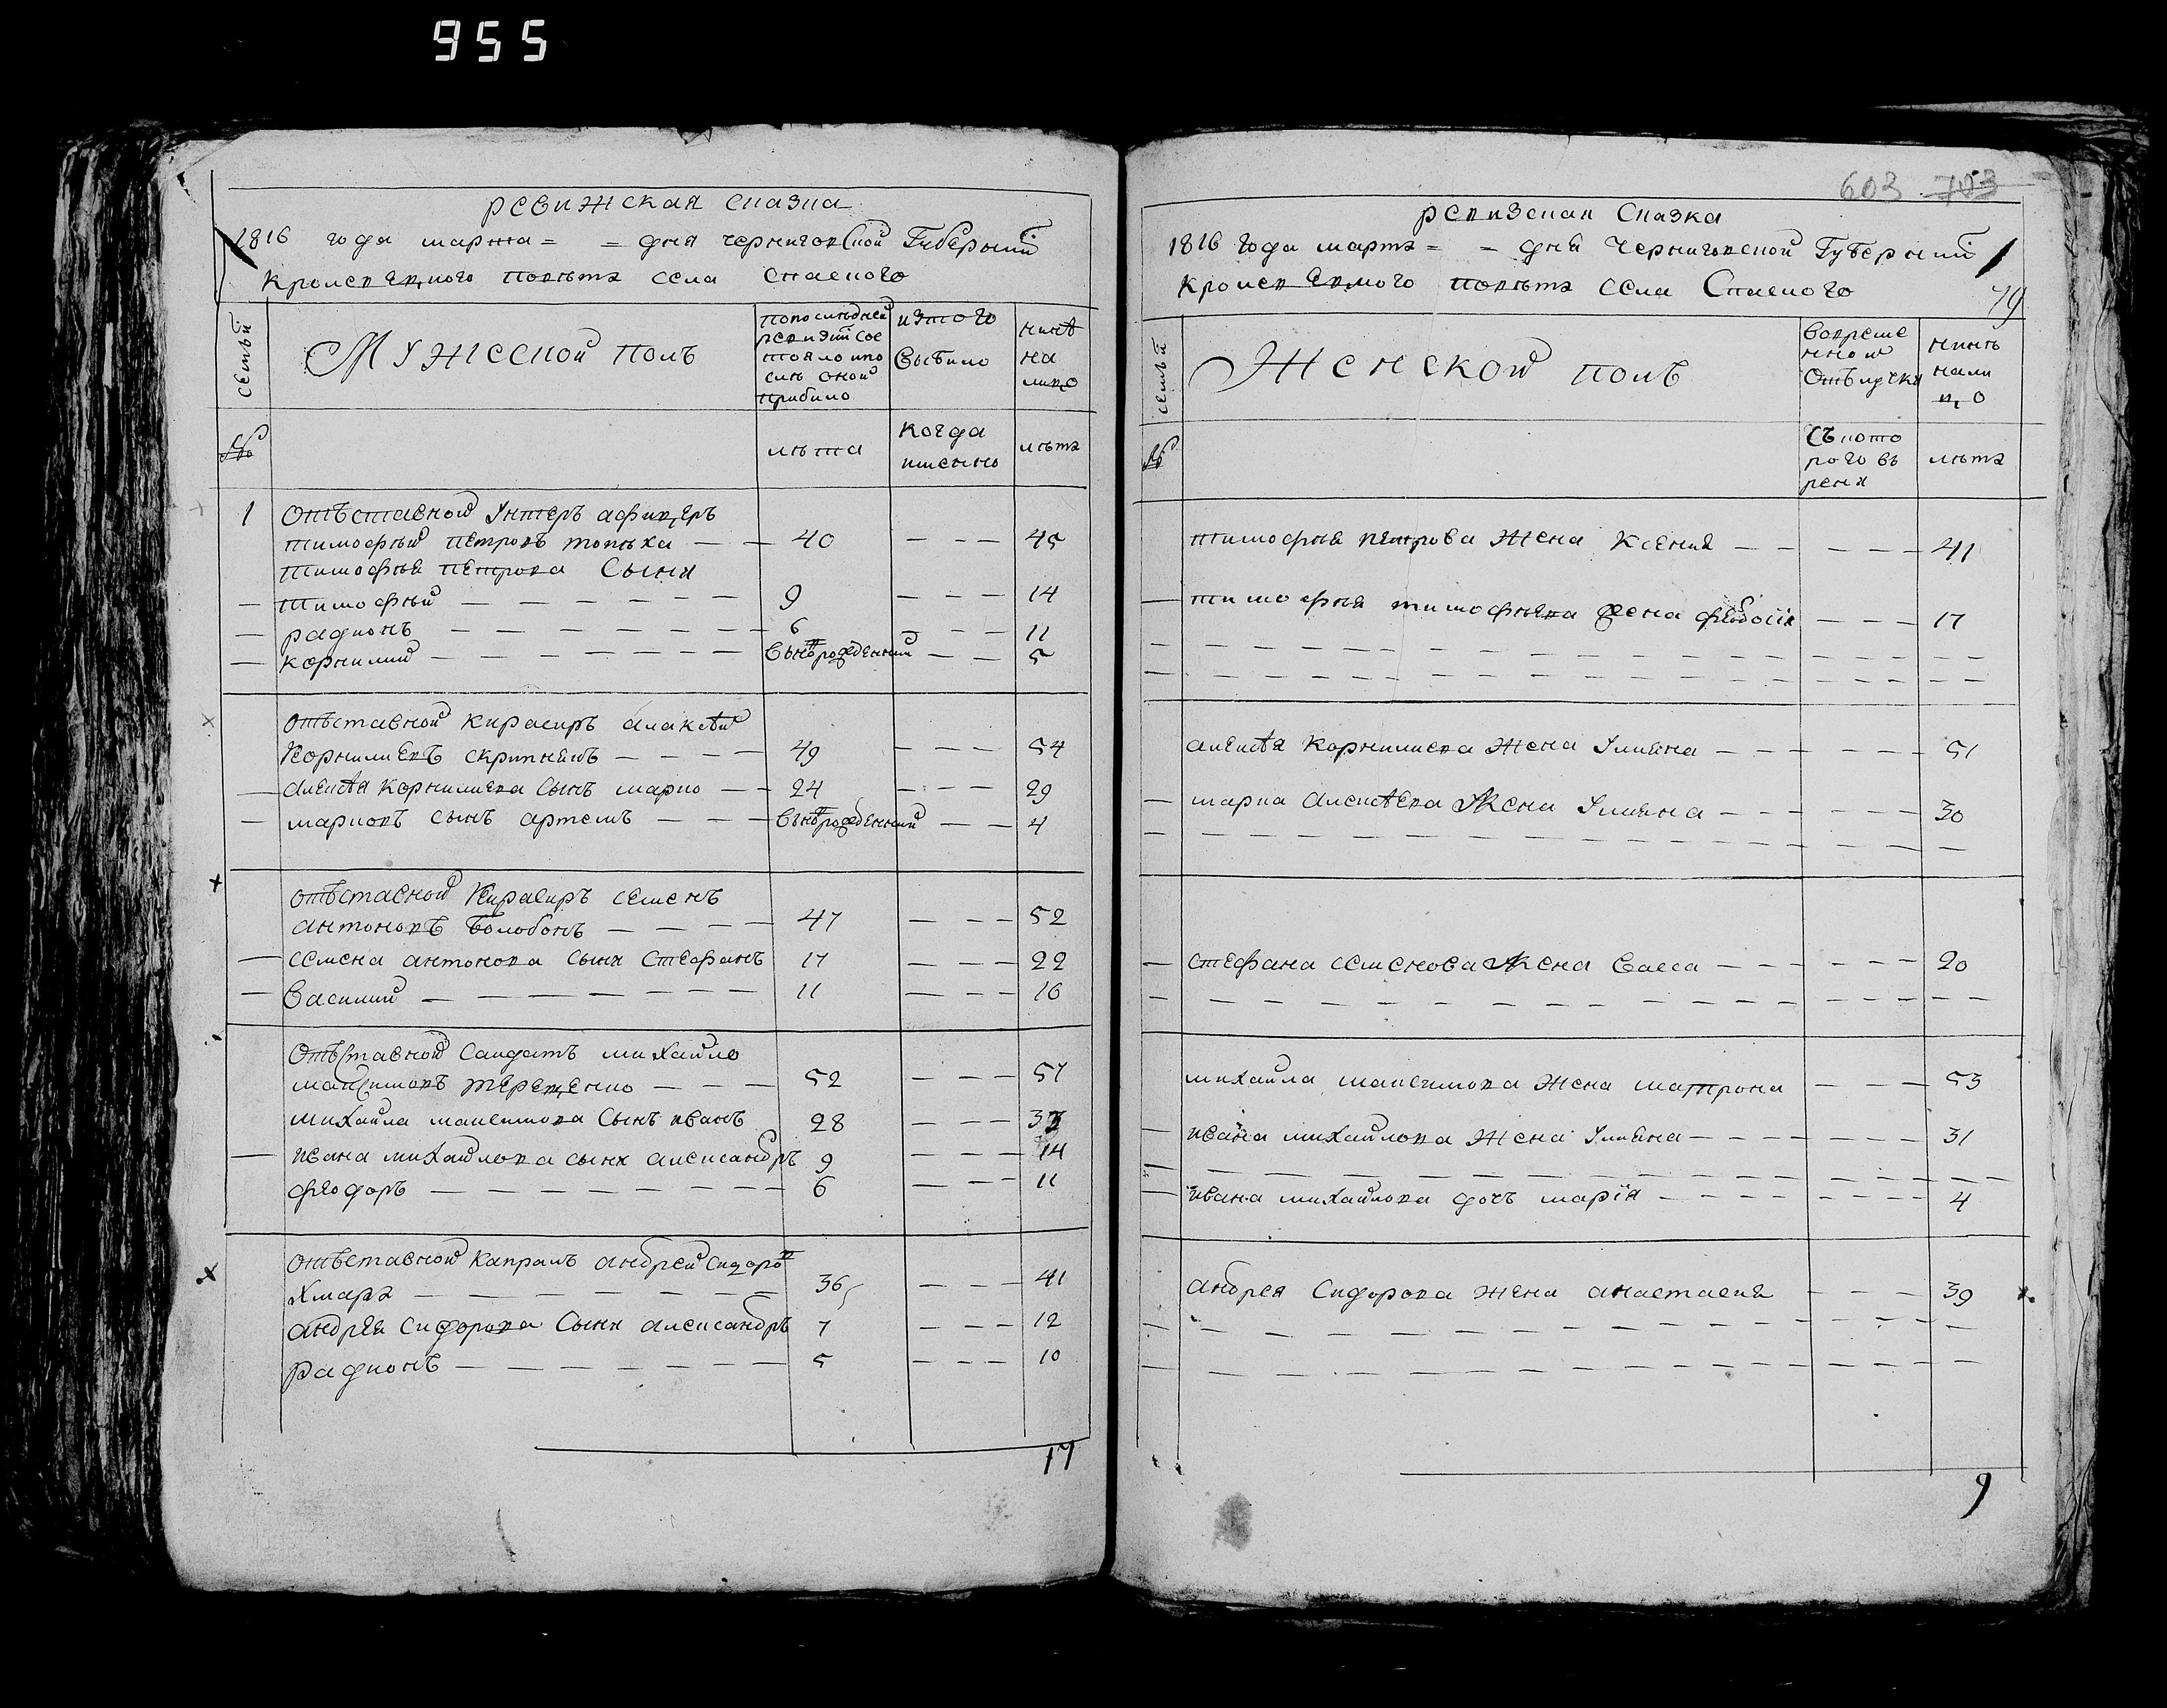 955
ревижская сказка
1816 года марта = = дня черниговской Губернїи
кролевецкого повѣта села Спаского
семьи
Мужеской полъ
попоследней ревизїи состояло ипосль оной прибило
изтого Выбило
нинѣ на лицо
№
лѣта
когда имянно
лѣта
1 Отъставной Унтеръ афицеръ
тимофей петровъ топѣха — — 40 — — — 45
тимофея петрова Сыня
— тимофѣй — — — — — — 9 — — — 14
— радионъ — — — — — — 6 — — — 11
— корнилий — — — — — — вьноврожденний — — 5
отъставной кирасиръ алаксѣй
Корнилиевъ скрипнѣкъ — — — 49 — — — 54
— Алексѣя корнилиева Сынъ марко — — 24 — — — 29
— марковъ сынъ артемъ — — — вьноврожденний — — 4
отъставной Кирасиръ семенъ
антоновъ Болобонъ — — — — 47 — — — 52
— семена антонова сыня Стефанъ 17 — — — 22
— Василий — — — — — — — 11 — — — 16
Отъставной Салдатъ михайло
максимовъ терещенко — — — 52 — — — 57
михайла максимова Сынъ иванъ 28 — — — 33
— ивана михайлова сыня александръ 9 — — — 14
фѣодоръ — — — — — — — — 6 — — — 11
отъставной капралъ андрей Сидоровъ
Хмара — — — — — — — 36 — — — 41
андрея Сидорова Сыня александръ 7 — — — 12
радионъ — — — — — — — 5 — — — 10
17
603 703
ревизская Сказка
1816 года марта = — дня Черниговской Губернїи
кролевецкого повѣта села Спаского
79
семьи
Женской полъ
Вовременной Отълучки
нинѣ нали цо
№
Съкоторого время
лѣта
тимофея петрова Жена Ксения — — — — — 41
— тимофея тимофѣева жена фѣодосїя — — — 17
алексѣя корнилиева Жена Улияна — — — — — — 51
— марка Алексѣева Жена Улияна — — — — — — 30
— стефана семенова Жена Васса — — — — — — 20
михайла максимова жена матрона — — — 53
— ивана михайлова Жена Улияна — — — — — — 31
— ивана михайлова дочъ марїя — — — — — — — 4
андрея Сидорова жена анастасия — — — 39
9